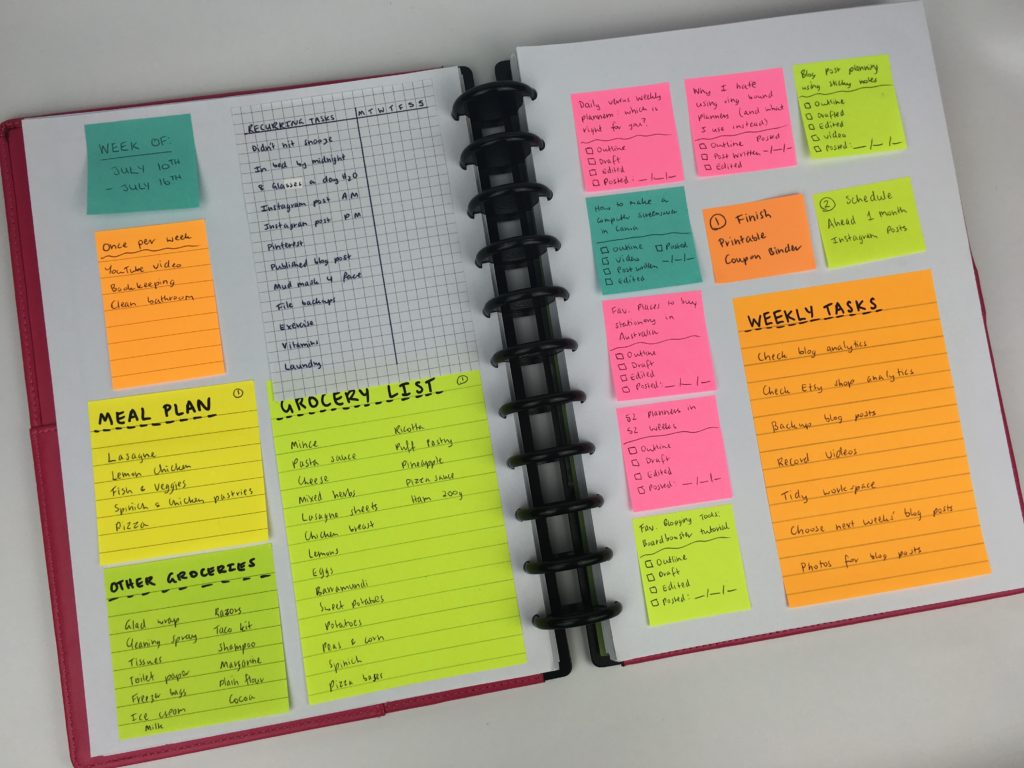 WEEK OF:
JULY 10TH
- JULY 16TH
Once per week
YouTube video
Bookkeeping
Clean bathroom
RECURRING TASKS
M T W T F S S
Didn't hit snooze
In bed by midnight
8 Glasses a day H2O
Instagram post A.M
Instagram post P.M
Pinterest
Published blog post
Mud mask 4 face
File backups
Exercise
Vitamins
Laundry
MEAL PLAN ①
Lasagne
Lemon chicken
Fish & Veggies
Spinich & chicken pastries
Pizza
GROCERY LIST ①
Mince
Pasta sauce
Cheese
Mixed herbs
Lasagne sheets
Chicken breast
Lemons
Eggs
Barramundi
Sweet potatoes
Potatoes
Peas & corn
Spinich
Pizza bases
Ricotta
Puff Pastry
Pineapple
Pizza sauce
Ham 200g
OTHER GROCERIES
Glad wrap
Cleaning spray
Tissues
Toilet paper
Freezer bags
Ice cream
Milk
Razors
Taco kit
Shampoo
Margarine
Plain flour
Cocoa
Daily versus weekly
planners: which is
right for you?
Outline
Draft
Edited
Posted: -/-/-
Why I hate
using ring bound
planners (and what
I use instead)
Outline Posted
Post written -/-/-
Edited
Blog Post planning
using sticky notes
Outline
Drafted
Edited
Video
Posted: -/-/-
How to make a
computer screensaver
in Canva
Outline Posted
Video -/-/-
Post written
Edited
① Finish
Printable
Coupon Binder
② Schedule
Ahead 1 month
Instagram Posts
Fav. Places to buy
stationery in
Australia
Outline
Draft
Edited
Posted: -/-/-
52 Planners in
52 weeks
Outline
Draft
Edited
Posted: -/-/-
Fav. Blogging Tools:
Boardbooster tutorial
Outline
Draft
Edited
Posted: -/-/-
WEEKLY TASKS
Check blog analytics
Check Etsy shop analytics
Backup blog posts
Record videos
Tidy workspace
Choose next weeks' blog posts
Photos for blog posts